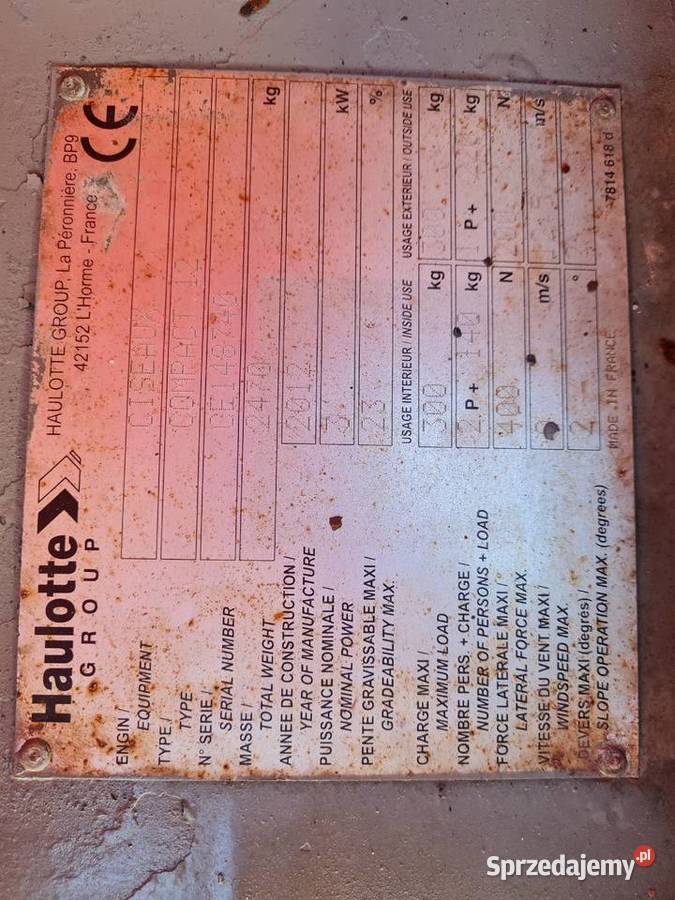 Haulotte
GROUP
HAULOTTE GROUP, La Péronnière, BP9
42152 L'Horme - France
CE
ENGIN /
EQUIPMENT CISEAUX
TYPE /
TYPE COMPACT 12
N° SERIE /
SERIAL NUMBER CE148740
MASSE /
TOTAL WEIGHT 2470 kg
ANNEE DE CONSTRUCTION /
YEAR OF MANUFACTURE 2012
PUISSANCE NOMINALE /
NOMINAL POWER 3 kW
PENTE GRAVISSABLE MAXI /
GRADEABILITY MAX. 23 %
USAGE INTERIEUR / INSIDE USE USAGE EXTERIEUR / OUTSIDE USE
CHARGE MAXI /
MAXIMUM LOAD 300 kg kg
NOMBRE PERS. + CHARGE /
NUMBER OF PERSONS + LOAD 2 P + 140 kg P + kg
FORCE LATERALE MAXI /
LATERAL FORCE MAX. 400 N N
VITESSE DU VENT MAXI /
WINDSPEED MAX. m/s m/s
DEVERS MAXI (degrés) /
SLOPE OPERATION MAX. (degrees) 2 °
MADE IN FRANCE
7814 618 d
Sprzedajemy.pl